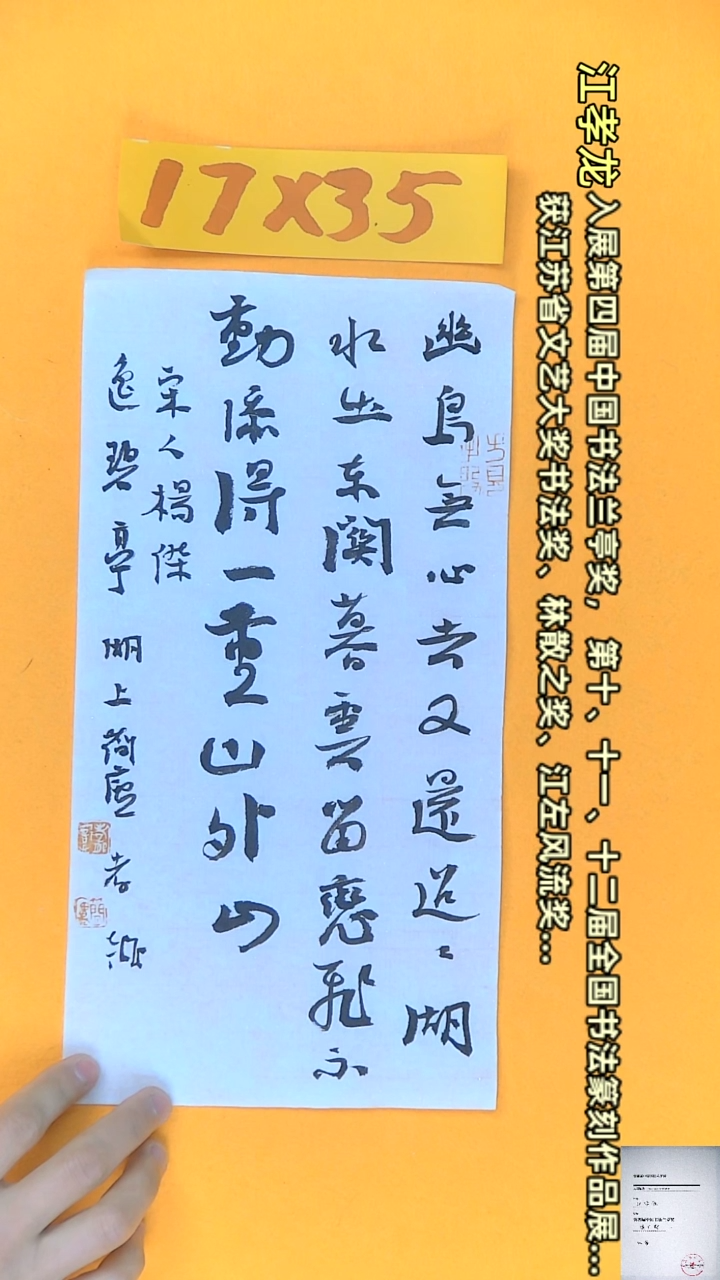 17X35
江孝龙 入展第四届中国书法兰亭奖， 第十、十一、十二届全国书法篆刻作品展...
获江苏省文艺大奖书法奖、林散之奖、江左风流奖...
幽鳥無心去又還迢〻湖
水出東關暮雲留戀飛不
動添得一重山外山
宋人楊傑
逸碧亭 湖上簡廬 孝龍